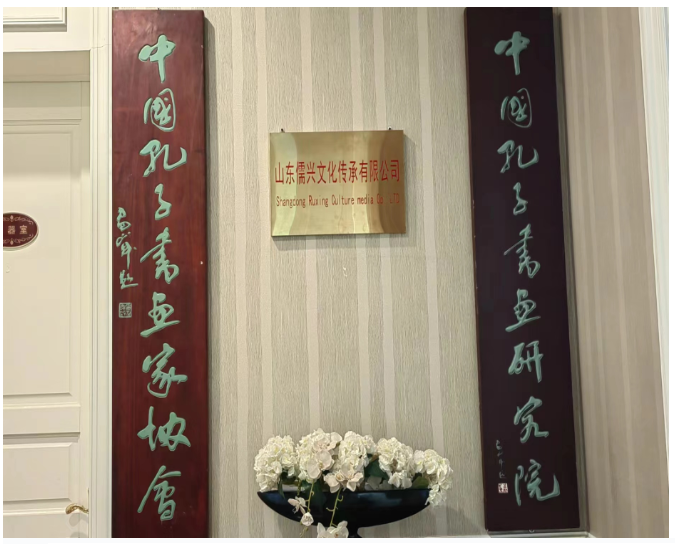 中國孔子書画家协會
山东儒兴文化传承有限公司
Shangdong Ruxing Culture media Co. LTD
中國孔子書画研究院
器室